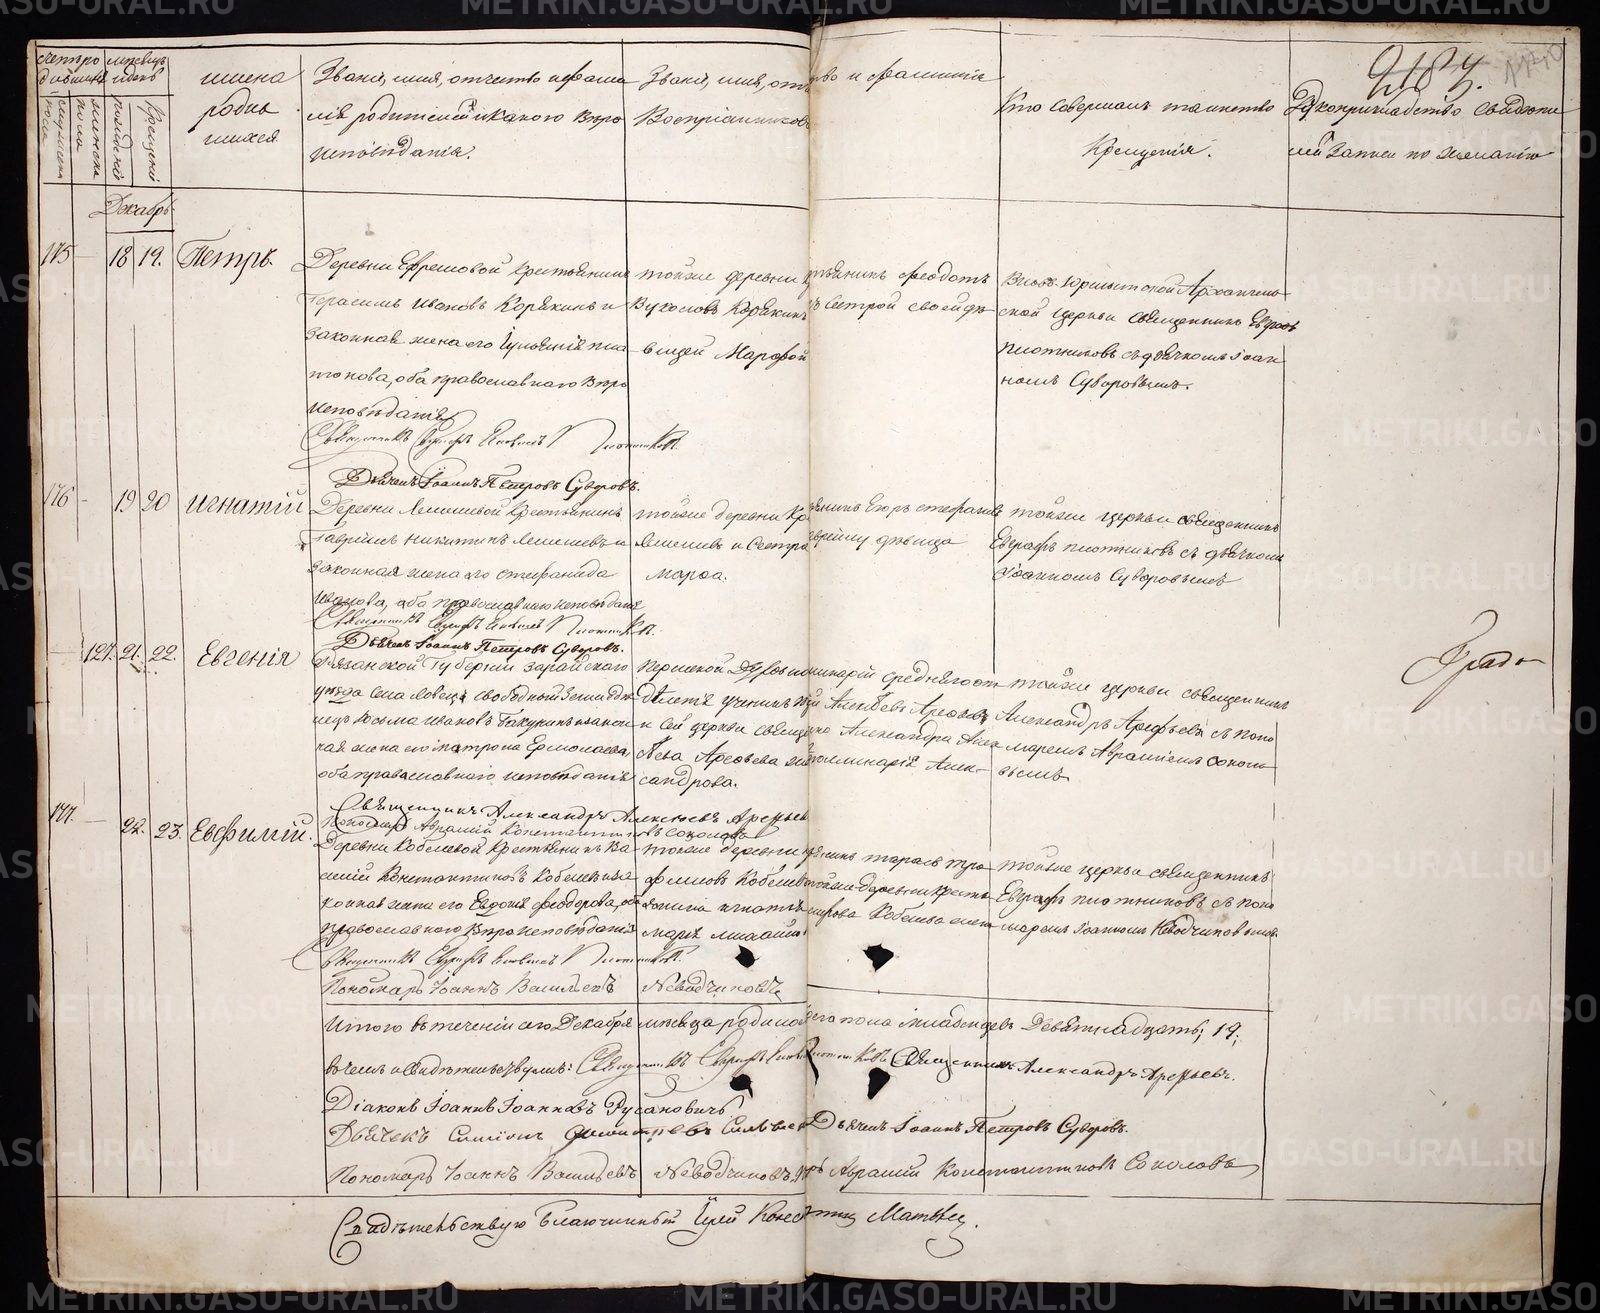 METRIKI.GASO-URAL.RU
2184.
Счетъ ро
дившихся
мѣсяцъ
и день
мужеска
пола
женска
пола
рожденія
крещенія
имена
родив
шихся
Званіе, имя, отчество и фами
лія родителей и какого вѣро
исповѣданія.
Званіе, имя, отчество и фамилія
Воспріемниковъ
Кто совершалъ таинство
Крещенія.
Рукоприкладство свидѣте
лей записи по желанію
Декабрь
175 — 18 19. Петръ.
Деревни Ефремовой крестьянинъ
Герасимъ Ивановъ Корякинъ и
законная жена его Іуліанія Пла
тонова, оба православнаго вѣро
исповѣданія
тойже деревни крестьянинъ Феодотъ
Вуколовъ Корякинъ съ сестрой своей дѣ
вицей Марфой
Вновь-Юрмытской Архангель
ской церкви священникъ Евграфъ
Плотниковъ съ дьячкомъ Іоан
номъ Суворовымъ.
Священникъ Евграфъ Плотниковъ
Дьячекъ Іоаннъ Петровъ Суворовъ.
176 — 19 20 Игнатій
Деревни Лемешевой крестьянинъ
Гавріилъ Никитинъ Лемешевъ и
законная жена его Стефанида
Иванова, оба православнаго исповѣданія
тойже деревни крестьянинъ Егоръ Стефановъ
Лемешевъ и сестра дѣвица
Марфа.
тойже церкви священникъ
Евграфъ Плотниковъ съ дьячкомъ
Іоанномъ Суворовымъ
Священникъ Евграфъ Плотниковъ
Дьячекъ Іоаннъ Петровъ Суворовъ.
— 127. 21. 22. Евгенія
Рязанской Губерніи Зарайскаго
уѣзда села Ловецъ свободный земледѣ
лецъ Козьма Ивановъ и закон
ная жена его Матрона Ермолаева,
оба православнаго исповѣданія
Пермской семинаріи средняго от
дѣленія ученикъ Алексѣевъ Арефьевъ
и сей церкви священника Александра Алек
сѣева Арефьева Аполлинарія Алек
сандрова.
тойже церкви священникъ
Александръ Арефьевъ съ поно
маремъ Авраміемъ Соколо
вымъ
Священникъ Александръ Алексѣевъ Арефьевъ
Пономарь Аврамій Константиновъ Соколовъ
177. — 22. 23. Евфимій.
Деревни Кобелевой крестьянинъ Ва
силій Константиновъ Кобелевъ и за
конная жена его Евдокія Феодорова, оба
православнаго вѣроисповѣданія
тойже деревни крестьянинъ Тарасъ Тро
фимовъ Кобелевъ тойже деревни крестья
Кобелева
тойже церкви священникъ
Евграфъ Плотниковъ съ поно
маремъ Іоанномъ Неводчиковымъ
Священникъ Евграфъ Плотниковъ
Пономарь Іоаннъ Васильевъ Неводчиковъ
Итого въ теченіи сего Декабря мѣсяца родилось пола младенцевъ девятнадцать; 19;
въ чемъ и свидѣтельствуемъ: Священникъ Евграфъ Плотниковъ Священникъ Александръ Арефьевъ.
Діаконъ Іоаннъ Іоанновъ Русановичъ
Дьячекъ Симеонъ Димитріевъ Дьячекъ Іоаннъ Петровъ Суворовъ.
Пономарь Іоаннъ Васильевъ Неводчиковъ. Аврамій Константиновъ Соколовъ
Свидѣтельствую Благочинный Іерей